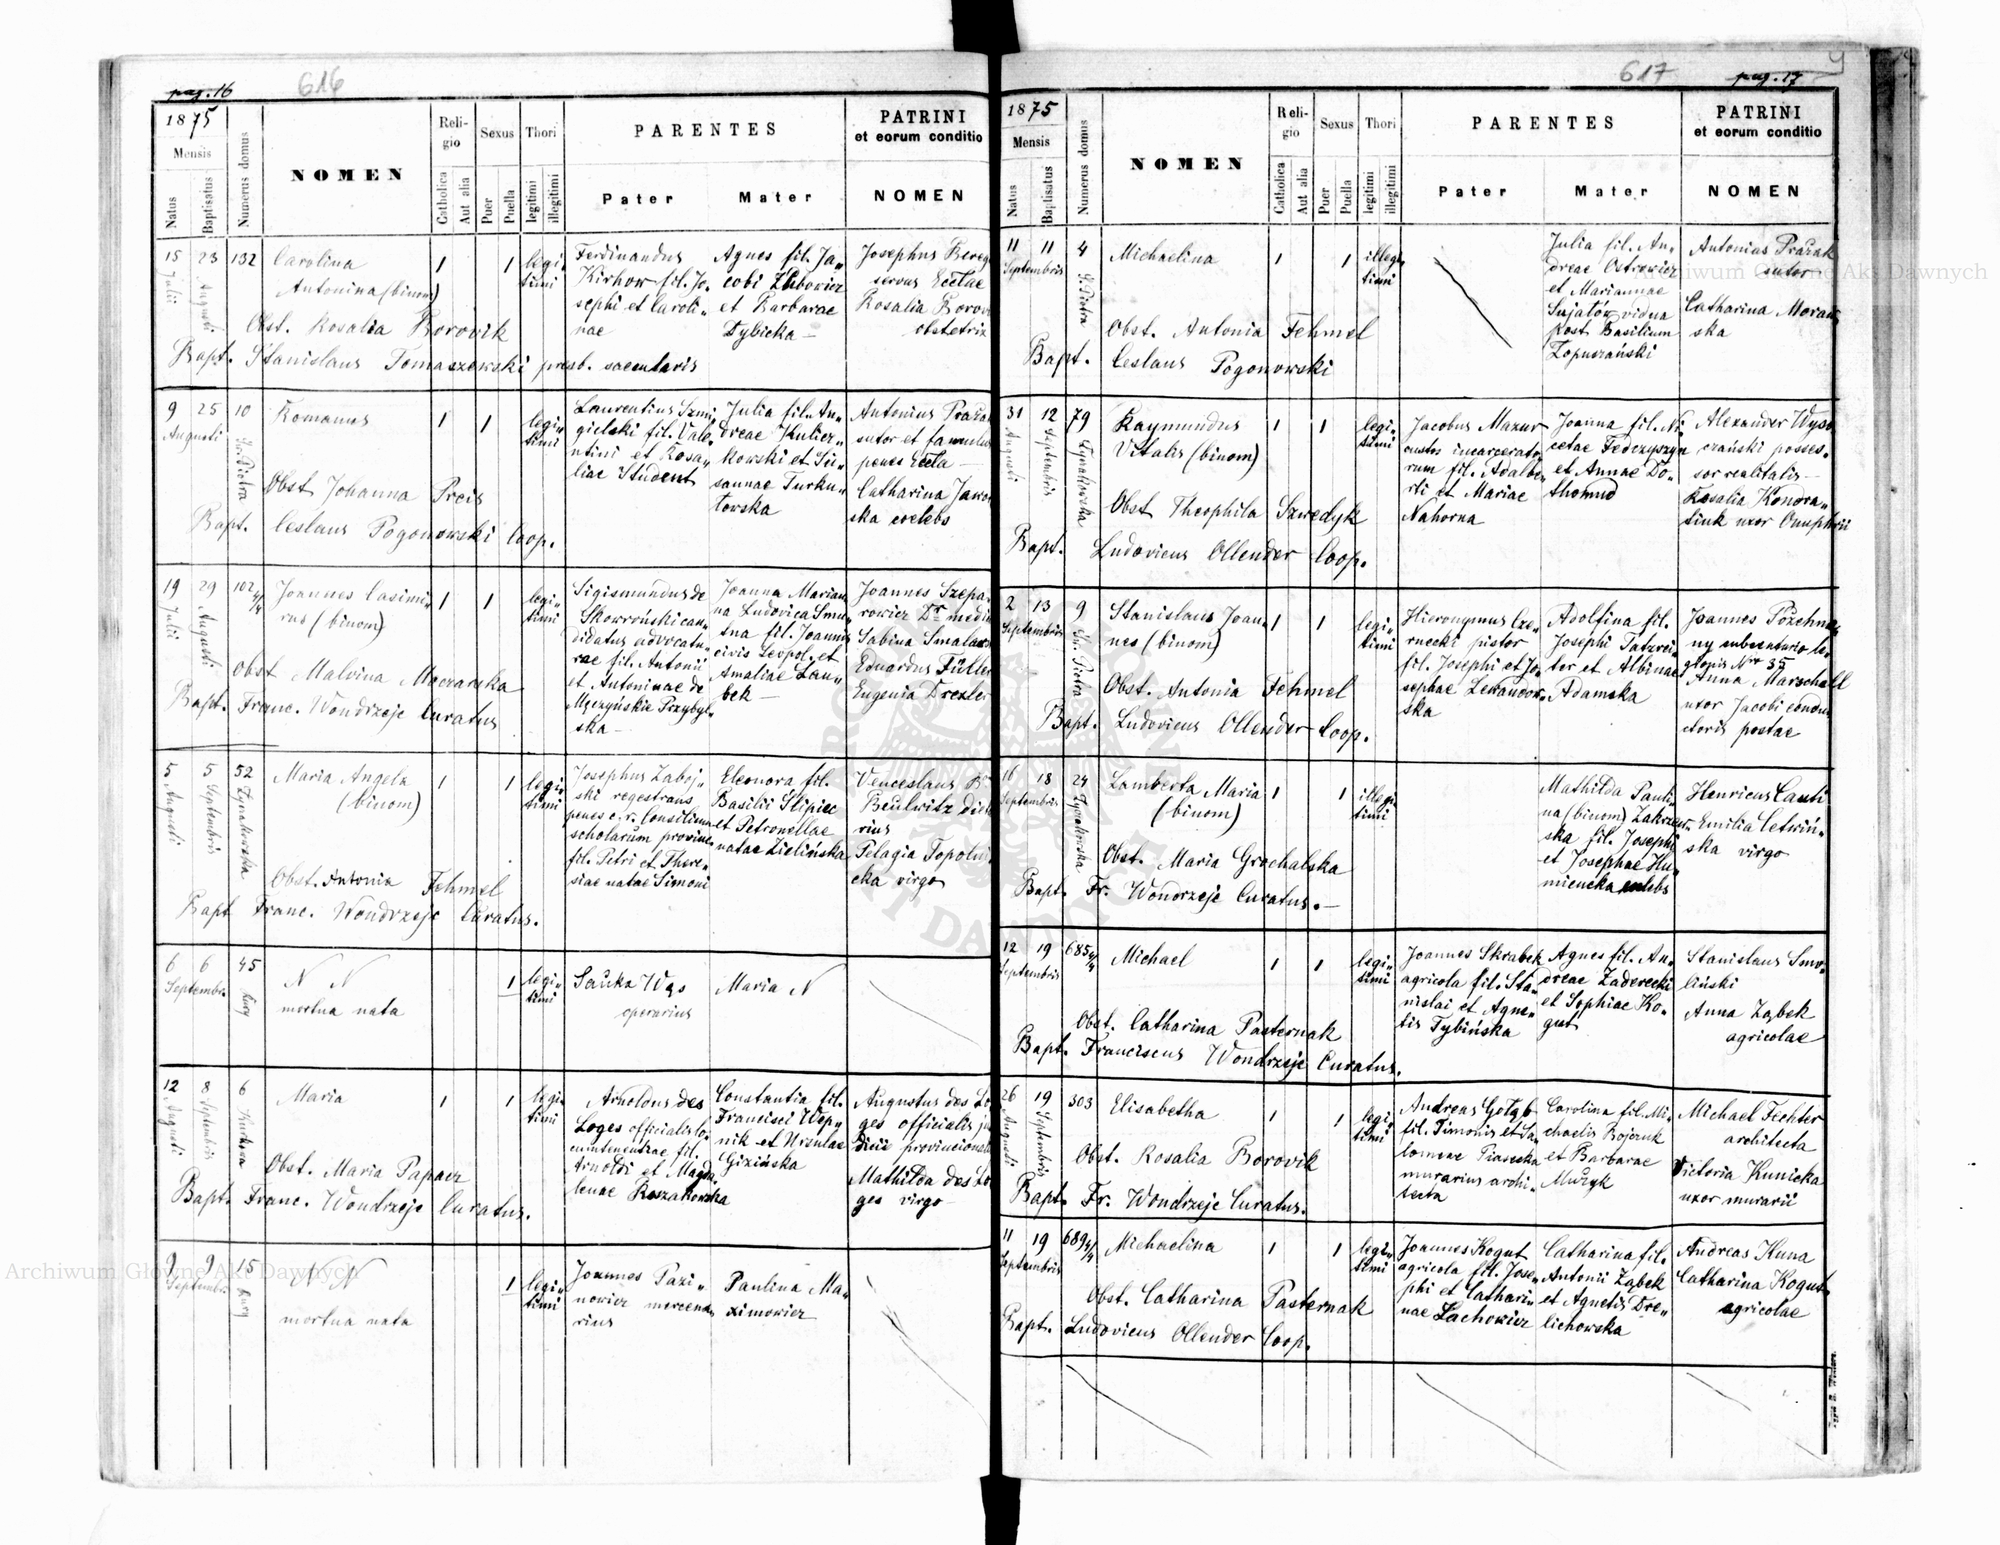 pag. 16
616
1875
Mensis
Natus
Baptisatus
Numerus domus
NOMEN
Religio
Catholica
Aut alia
Sexus
Puer
Puella
Thori
legitimi
illegitimi
PARENTES
Pater
Mater
PATRINI
et eorum conditio
NOMEN
15 Julii
23 Augusti
132
Carolina
Antonina (binom)
Obst. Rosalia Borovik
Bapt. Stanislaus Tomaszewski presb. saecularis
1
1
legi-
timi
Ferdinandus
Kirhow fil. Jo-
sephi et Caroli-
nae
Agnes fil. Ja-
cobi
et Barbarae
Dybicka
Josephus
servus Ecclae
Rosalia Borov
obstetrix
9 Augusti
25
10
S. Piotra
Romanus
Obst Johanna Preis
Bapt. Ceslaus Pogonowski Coop.
1
1
legi-
timi
Laurentius Szmi-
gielski fil. Vale-
ntini et Rosa-
liae Student
Julia fil. An-
dreae Kulicz-
kowski et Su-
sannae Turku-
towska
Antonius Pražak
sutor et famulus
penes Eccla
Catharina Jawor
ska coelebs
19 Julii
29 Augusti
102 4/4
Joannes Casimi-
rus (binom)
Obst Malvina Moczarska
Bapt. Franc. Wondrzeje Curatus
1
1
legi-
timi
Sigismundus de
Skorroński can-
didatus advocatu-
rae fil. Antonii
et Antoninae de
Męczyńskie Przybyl-
ska
Joanna Marian-
na Ludovica Smu-
tna fil. Joannis
civis Leopol. et
Amaliae Lau-
bek
Joannes Szepa-
rowicz Dr medi
Sabina
Eduardus Füller
Eugenia Drexler
5 Augusti
5 Septembris
52
Zyrakowska
Maria Angela
(binom)
Obst. Antonia Fehmel
Bapt Franc. Wondrzeje Curatus.
1
1
legi-
timi
Josephus Zaboj-
ski regestrans
penes c. r. Consilium
scholarum provinc.
fil. Petri et There-
siae natae Simoni
Eleonora fil.
Basilii Slipiec
et Petronellae
natae Zielińska
Venceslaus
Beulwitz
rius
Pelagia Topolni
cka virgo
6 Septembris
6
45
N N
mortua nata
1
legi-
timi
Sauka Wąs
operarius
Maria N
12 Augusti
8 Septembris
6
Maria
Obst. Maria Papacz
Bapt. Franc. Wondrzeje Curatus.
1
1
legi-
timi
Arnoldus des
Loges officialis lo-
cumtenentiae fil.
Arnoldi et Magda-
lenae Roszakowska
Constantia fil.
Francisci Wop-
nik et Ursulae
Gizińska
Augustus des Lo
ges officialis ju
dicii provincionalis
Mathilda des Lo
ges virgo
9 Septembris
9
15
N N
mortua nata
1
legi-
timi
Joannes Pazi-
nowicz mercena-
rius
Paulina Ma-
ximowicz
617
pag. 17
1875
Mensis
Natus
Baptisatus
Numerus domus
NOMEN
Religio
Catholica
Aut alia
Sexus
Puer
Puella
Thori
legitimi
illegitimi
PARENTES
Pater
Mater
PATRINI
et eorum conditio
NOMEN
11 Septembris
11
4
S. Piotra
Michaelina
Obst. Antonia Fehmel
Bapt. Ceslaus Pogonowski
1
1
illegi-
timi
Julia fil. An-
dreae Ostrowicz
et Mariannae
Sujatów vidua
post Basilium
Łopuszański
Antonius Pražak
sutor
Catharina Moraw
ska
31 Augusti
12 Septembris
79
Raymundus
Vitalis (binom)
Obst Theophila Szwedyk
Bapt. Ludovicus Ollender Coop.
1
1
legi-
timi
Jacobus Mazur
custos incarcerato-
rum fil. Adalbe-
rti et Mariae
Nahorna
Joanna fil. Ni-
cetae Fedczyszyn
et Annae Do-
thomud
Alexander Wyso
czański posses-
sor realitatis
Rosalia Kondra-
tiuk uxor Onuphrii
2 Septembris
13
9
S. Piotra
Stanislaus Joan-
nes (binom)
Obst. Antonia Fehmel
Bapt. Ludovicus Ollender Coop.
1
1
legi-
timi
Hieronymus Cze-
rnecki pistor
fil. Josephi et Jo-
sephae Lewandow-
ska
Adolfina fil.
Josephi Tatzrei-
ter et Albinae
Adamska
Joannes Pożehna-
ny subcenturio le-
gionis Nr 35
Anna Marschall
uxor Jacobi condu-
ctoris postae
16 Septembris
18
24
Zyrakowska
Lamberta Maria
(binom)
Obst. Maria Grochalska
Bapt. Fr. Wondrzeje Curatus.
1
1
illegi-
timi
Mathilda Pauli-
na (binom) Zakrzew-
ska fil. Josephi
et Josephae Hu-
mieucka coelebs
Henricus Cauti
Emilia Cetwiń-
ska virgo
12 Septembris
19
685 4/4
Michael
Obst. Catharina Pasternak
Bapt. Franciscus Wondrzeje Curatus.
1
1
legi-
timi
Joannes Skrabek
agricola fil. Sta-
nislai et Agne-
tis Tybińska
Agnes fil. An-
dreae Zaderecki
et Sophiae Ko-
gut
Stanislaus Smo-
liński
Anna Ząbek
agricolae
26 Augusti
19 Septembris
303
Elisabetha
Obst. Rosalia Borovik
Bapt. Fr. Wondrzeje Curatus.
1
1
legi-
timi
Andreas Gołąb
fil. Simonis et Sa-
lomeae Piasecka
murarius archi-
tecta
Carolina fil. Mi-
chaelis Bojczuk
et Barbarae
Mużyk
Michael Fechter
architecta
Victoria Kunicka
uxor murarii
11 Septembris
19
689 4/4
Michaelina
Obst. Catharina Pasternak
Bapt. Ludovicus Ollender Coop.
1
1
legi-
timi
Joannes Kogut
agricola fil. Jose-
phi et Cathari-
nae Lachowicz
Catharina fil.
Antonii Ząbek
et Agnetis Dre-
lichowska
Andreas Kuna
Catharina Kogut
agricolae
Archiwum Główne Akt Dawnych
Archiwum Główne Akt Dawnych